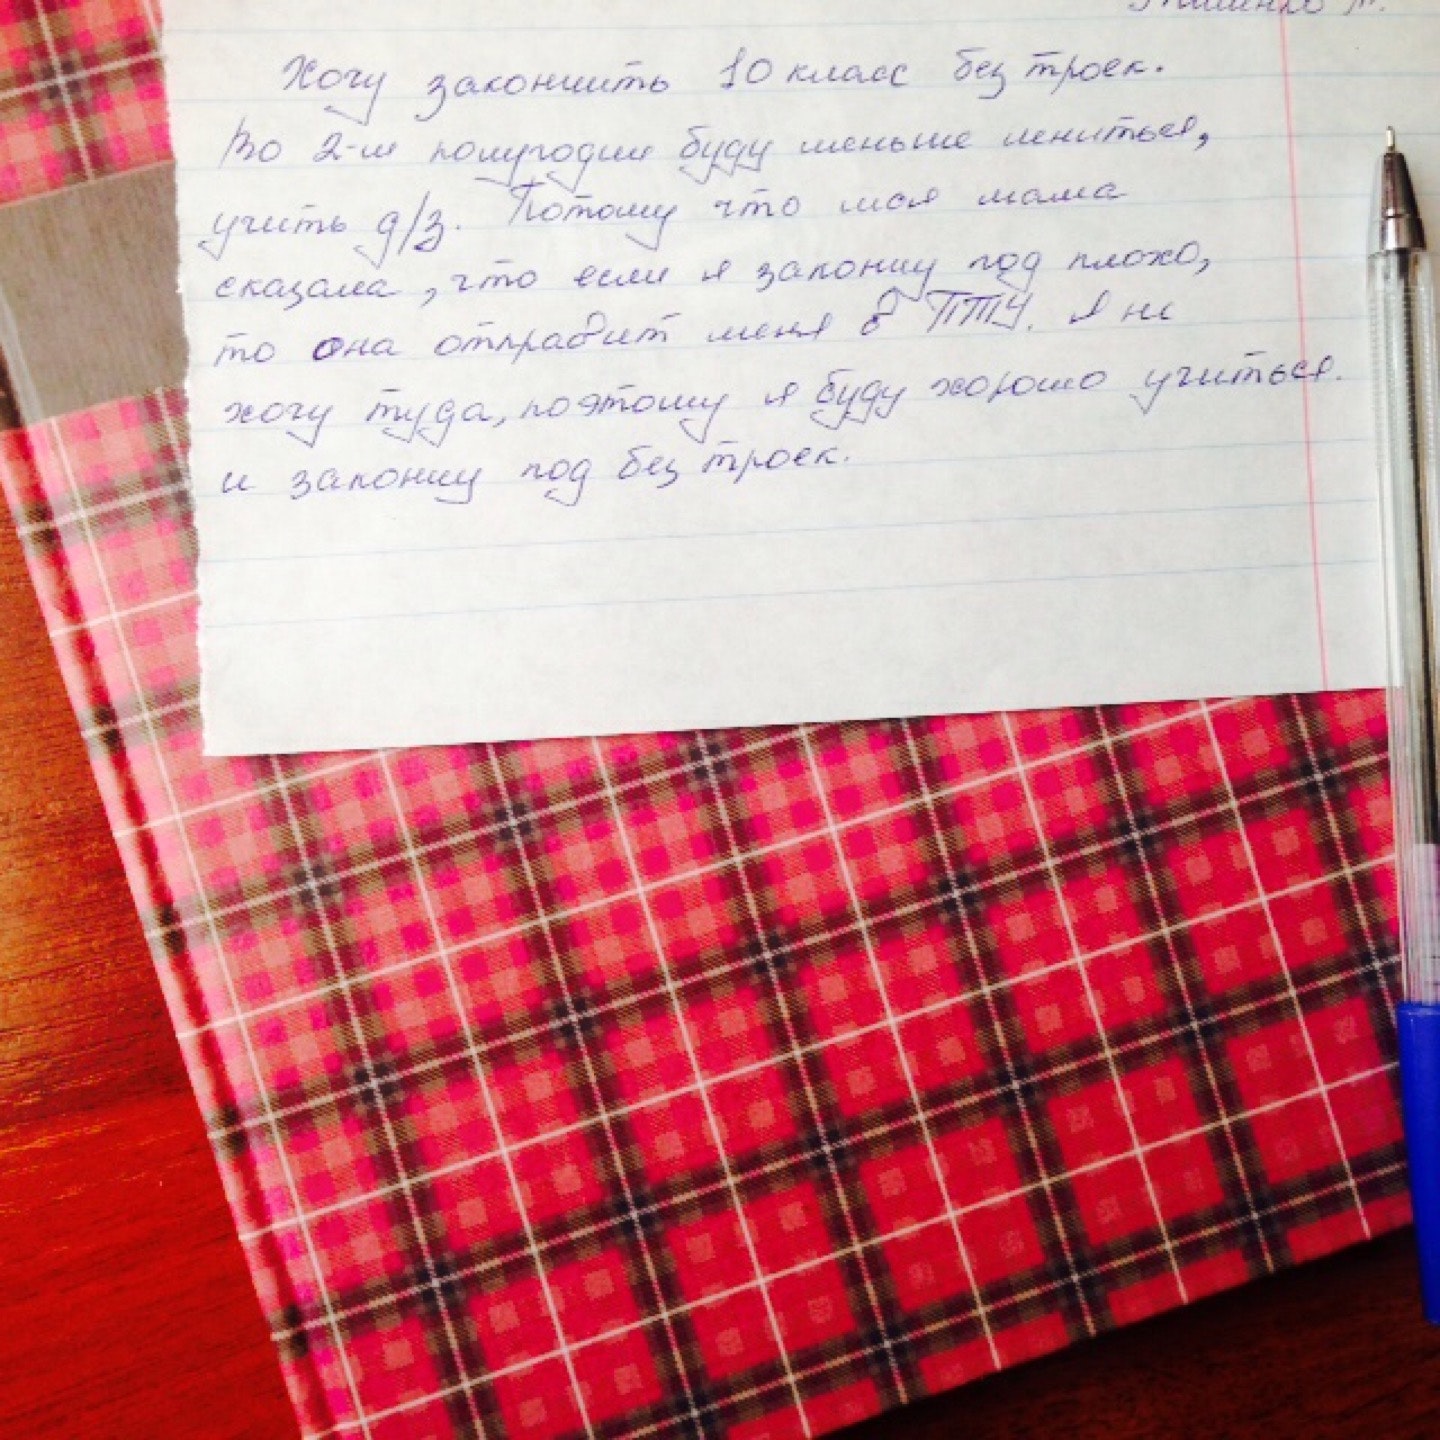 Хочу закончить 10 класс без троек.
Во 2-м полугодии буду меньше лениться,
учить д/з. Потому что моя мама
сказала, что если я закончу год плохо,
то она отправит меня в ПТУ. Я не
хочу туда, поэтому я буду хорошо учиться.
и закончу год без троек.